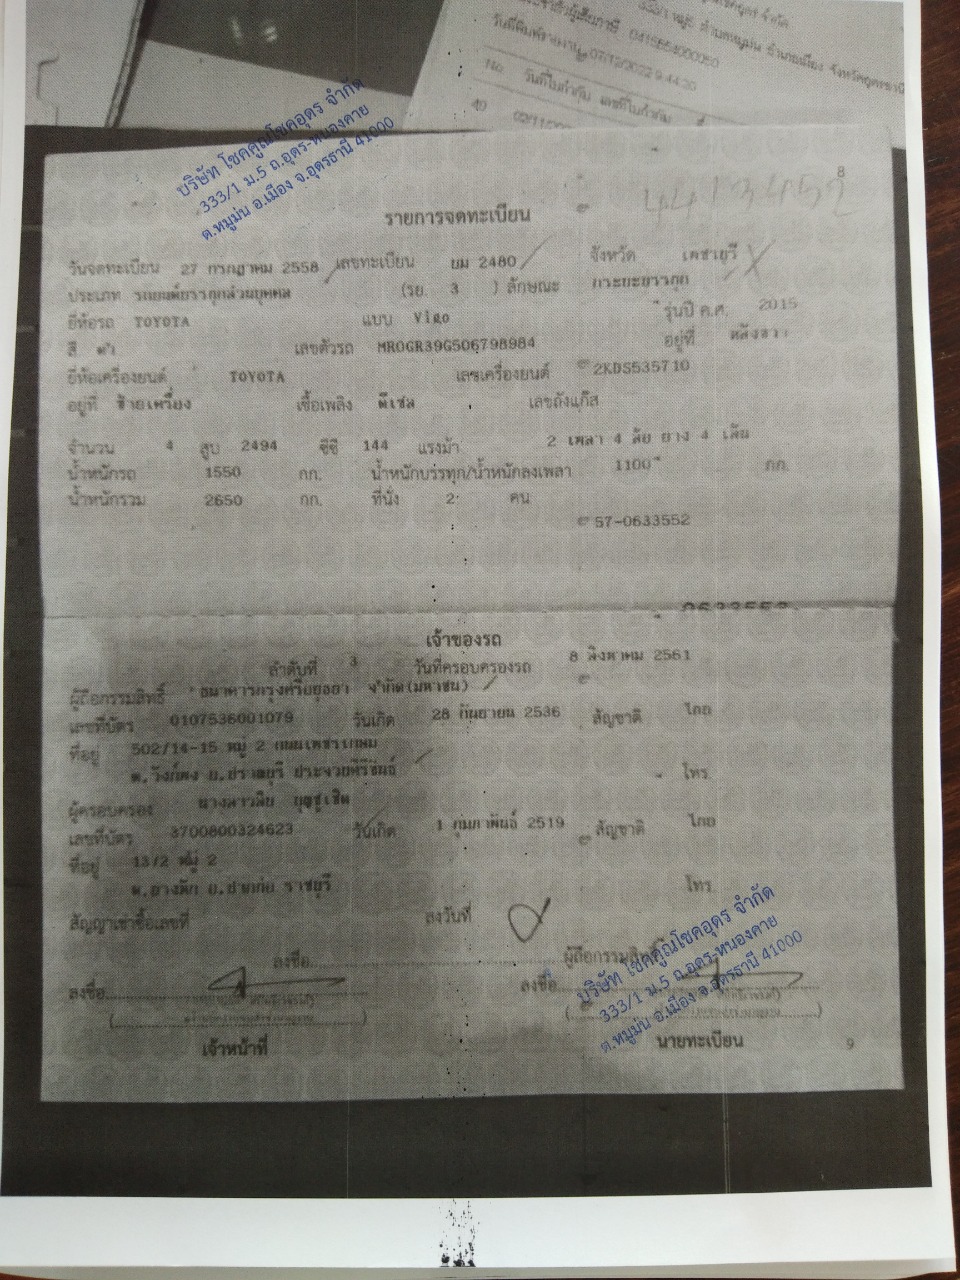 จำกัด
ตำบลหมูม่น อำเภอเมือง จังหวัดอุดรธานี
วันที่พิมพ์รายงาน 07/12/2022 9:44:20
No. วันที่ใบกำกับ เลขที่ใบกำกับ
บริษัท โชคคูณโชคอุดร จำกัด
333/1 ม.5 ถ.อุดร-หนองคาย
ต.หมูม่น อ.เมือง จ.อุดรธานี 41000
8
4413452
รายการจดทะเบียน
วันจดทะเบียน 27 กรกฎาคม 2558 เลขทะเบียน ยม 2480 จังหวัด เพชรบุรี
ประเภท รถยนต์บรรทุกส่วนบุคคล (รย. 3 ) ลักษณะ กระบะบรรทุก
ยี่ห้อรถ TOYOTA แบบ VIGO รุ่นปี ค.ศ. 2015
สี ดำ เลขตัวรถ MR0GR39G506798984 อยู่ที่ หลังขวา
ยี่ห้อเครื่องยนต์ TOYOTA เลขเครื่องยนต์ 2KDS535710
อยู่ที่ ซ้ายเครื่อง เชื้อเพลิง ดีเซล เลขถังแก๊ส
จำนวน 4 สูบ 2494 ซีซี 144 แรงม้า 2 เพลา 4 ล้อ ยาง 4 เส้น
น้ำหนักรถ 1550 กก. น้ำหนักบรรทุก/น้ำหนักลงเพลา 1100 กก.
น้ำหนักรวม 2650 กก. ที่นั่ง 2 คน
57-0633552
เจ้าของรถ
ลำดับที่ 3 วันที่ครอบครองรถ 8 สิงหาคม 2561
ผู้ถือกรรมสิทธิ์ ธนาคารกรุงศรีอยุธยา จำกัด(มหาชน)
เลขที่บัตร 0107536001079 วันเกิด 28 กันยายน 2536 สัญชาติ ไทย
ที่อยู่ 502/14-15 หมู่ 2 ถนนเพชรเกษม
ต.วังก์พง อ.ปราณบุรี ประจวบคีรีขันธ์ โทร.
ผู้ครอบครอง นางสาวลิย บุญชูเชิด
เลขที่บัตร 3700800324623 วันเกิด 1 กุมภาพันธ์ 2519 สัญชาติ ไทย
ที่อยู่ 13/2 หมู่ 2
ต.อ่างหิน อ.ปากท่อ ราชบุรี โทร.
สัญญาเช่าซื้อเลขที่ ลงวันที่
ลงชื่อ ผู้ถือกรรมสิทธิ์
ลงชื่อ ลงชื่อ
เจ้าหน้าที่ นายทะเบียน
9
บริษัท โชคคูณโชคอุดร จำกัด
333/1 ม.5 ถ.อุดร-หนองคาย
ต.หมูม่น อ.เมือง จ.อุดรธานี 41000